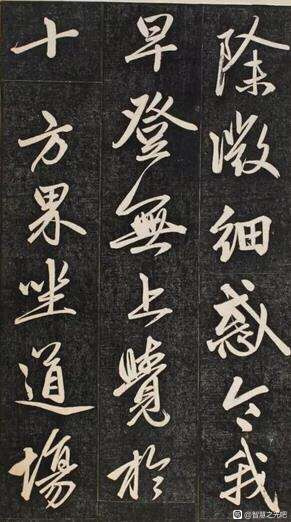 除微細惑令我
早登無上覺於
十方界坐道場
@智慧之光吧